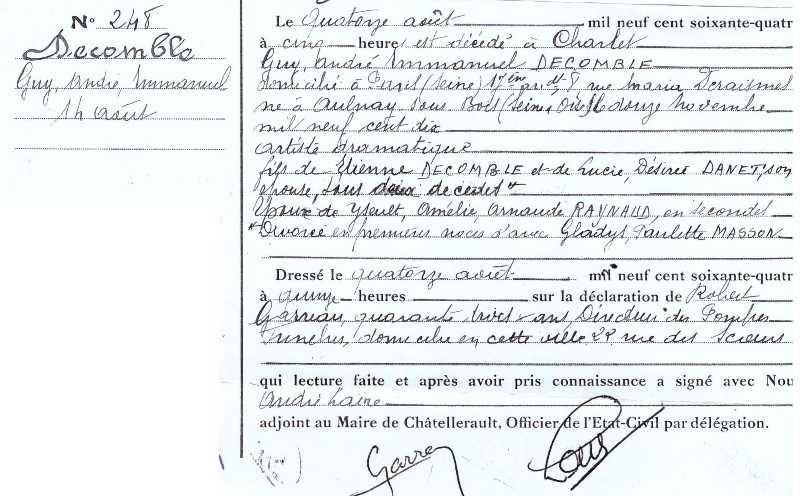 N° 248
Decomble
Guy, André, Immanuel
14 août
Le quatorze août mil neuf cent soixante-quatr
à cinq heures est décédé à Charlet
Guy, André Immanuel DECOMBLE
domicilié à Paris (Seine) 17ème ardt, 8 rue Maria Deraismes
né à Aulnay sous Bois (Seine & Oise) le douze novembre
mil neuf cent dix
artiste dramatique
fils de Etienne DECOMBLE et de Lucie, Désirée DANET, son
épouse, tous deux décédés
Epoux de Yseult, Amélie, Arnaude RAYNAUD, en secondes
Divorcé en premières noces d'avec Gladys, Paulette MASSON
Dressé le quatorze août mil neuf cent soixante-quatr
à quinze heures sur la déclaration de Robert
quarante trois ans, Directeur des Pompes
Funèbres, domicilié en cette ville 22 rue des
qui lecture faite et après avoir pris connaissance a signé avec Nou
André Laine
adjoint au Maire de Châtellerault, Officier de l'Etat-Civil par délégation.